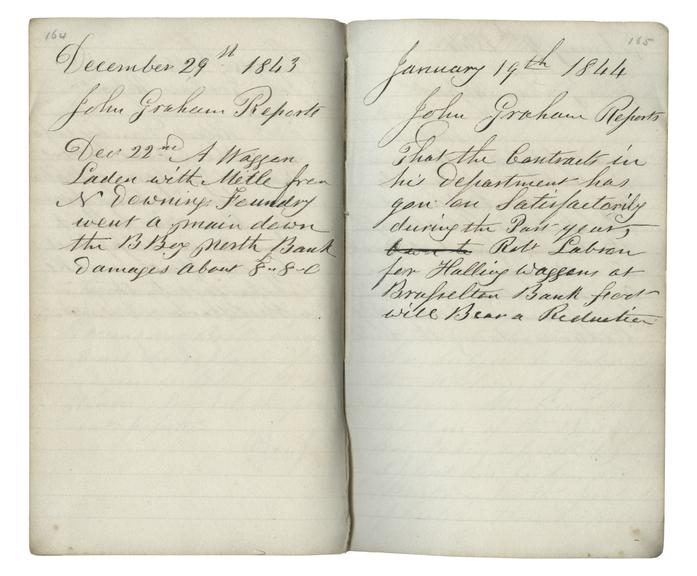 164
December 29st 1843
John Graham Reports
Dec 22nd A Waggen
Laden with Mitle from
N Downing Foundry
went a main down
the B Bog North Bank
damages about 8-8-0
165
January 19th 1844
John Graham Reports
That the Contracts in
his department has
gon on Satisfactorily
during the Past year,
Robt Labron
for Halling Waggens at
Brusselton Bank foot
will Bear a Reduction